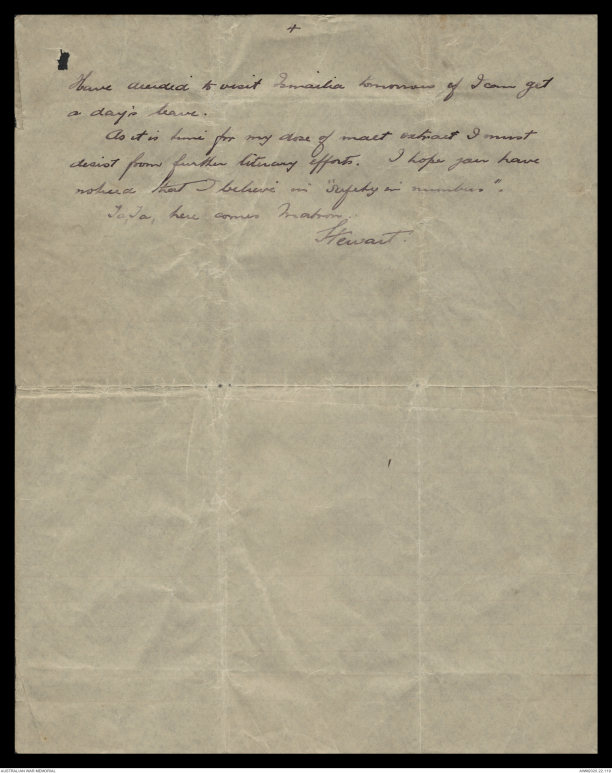 +
Have decided to visit Ismailia tomorrow if I can get
a day's leave.
As it is time for my dose of malt extract I must
desist from further literary efforts. I hope you have
noticed that I believe in "Safety in numbers".
Ta Ta, here comes Matron.
Stewart.
AUSTRALIAN WAR MEMORIAL